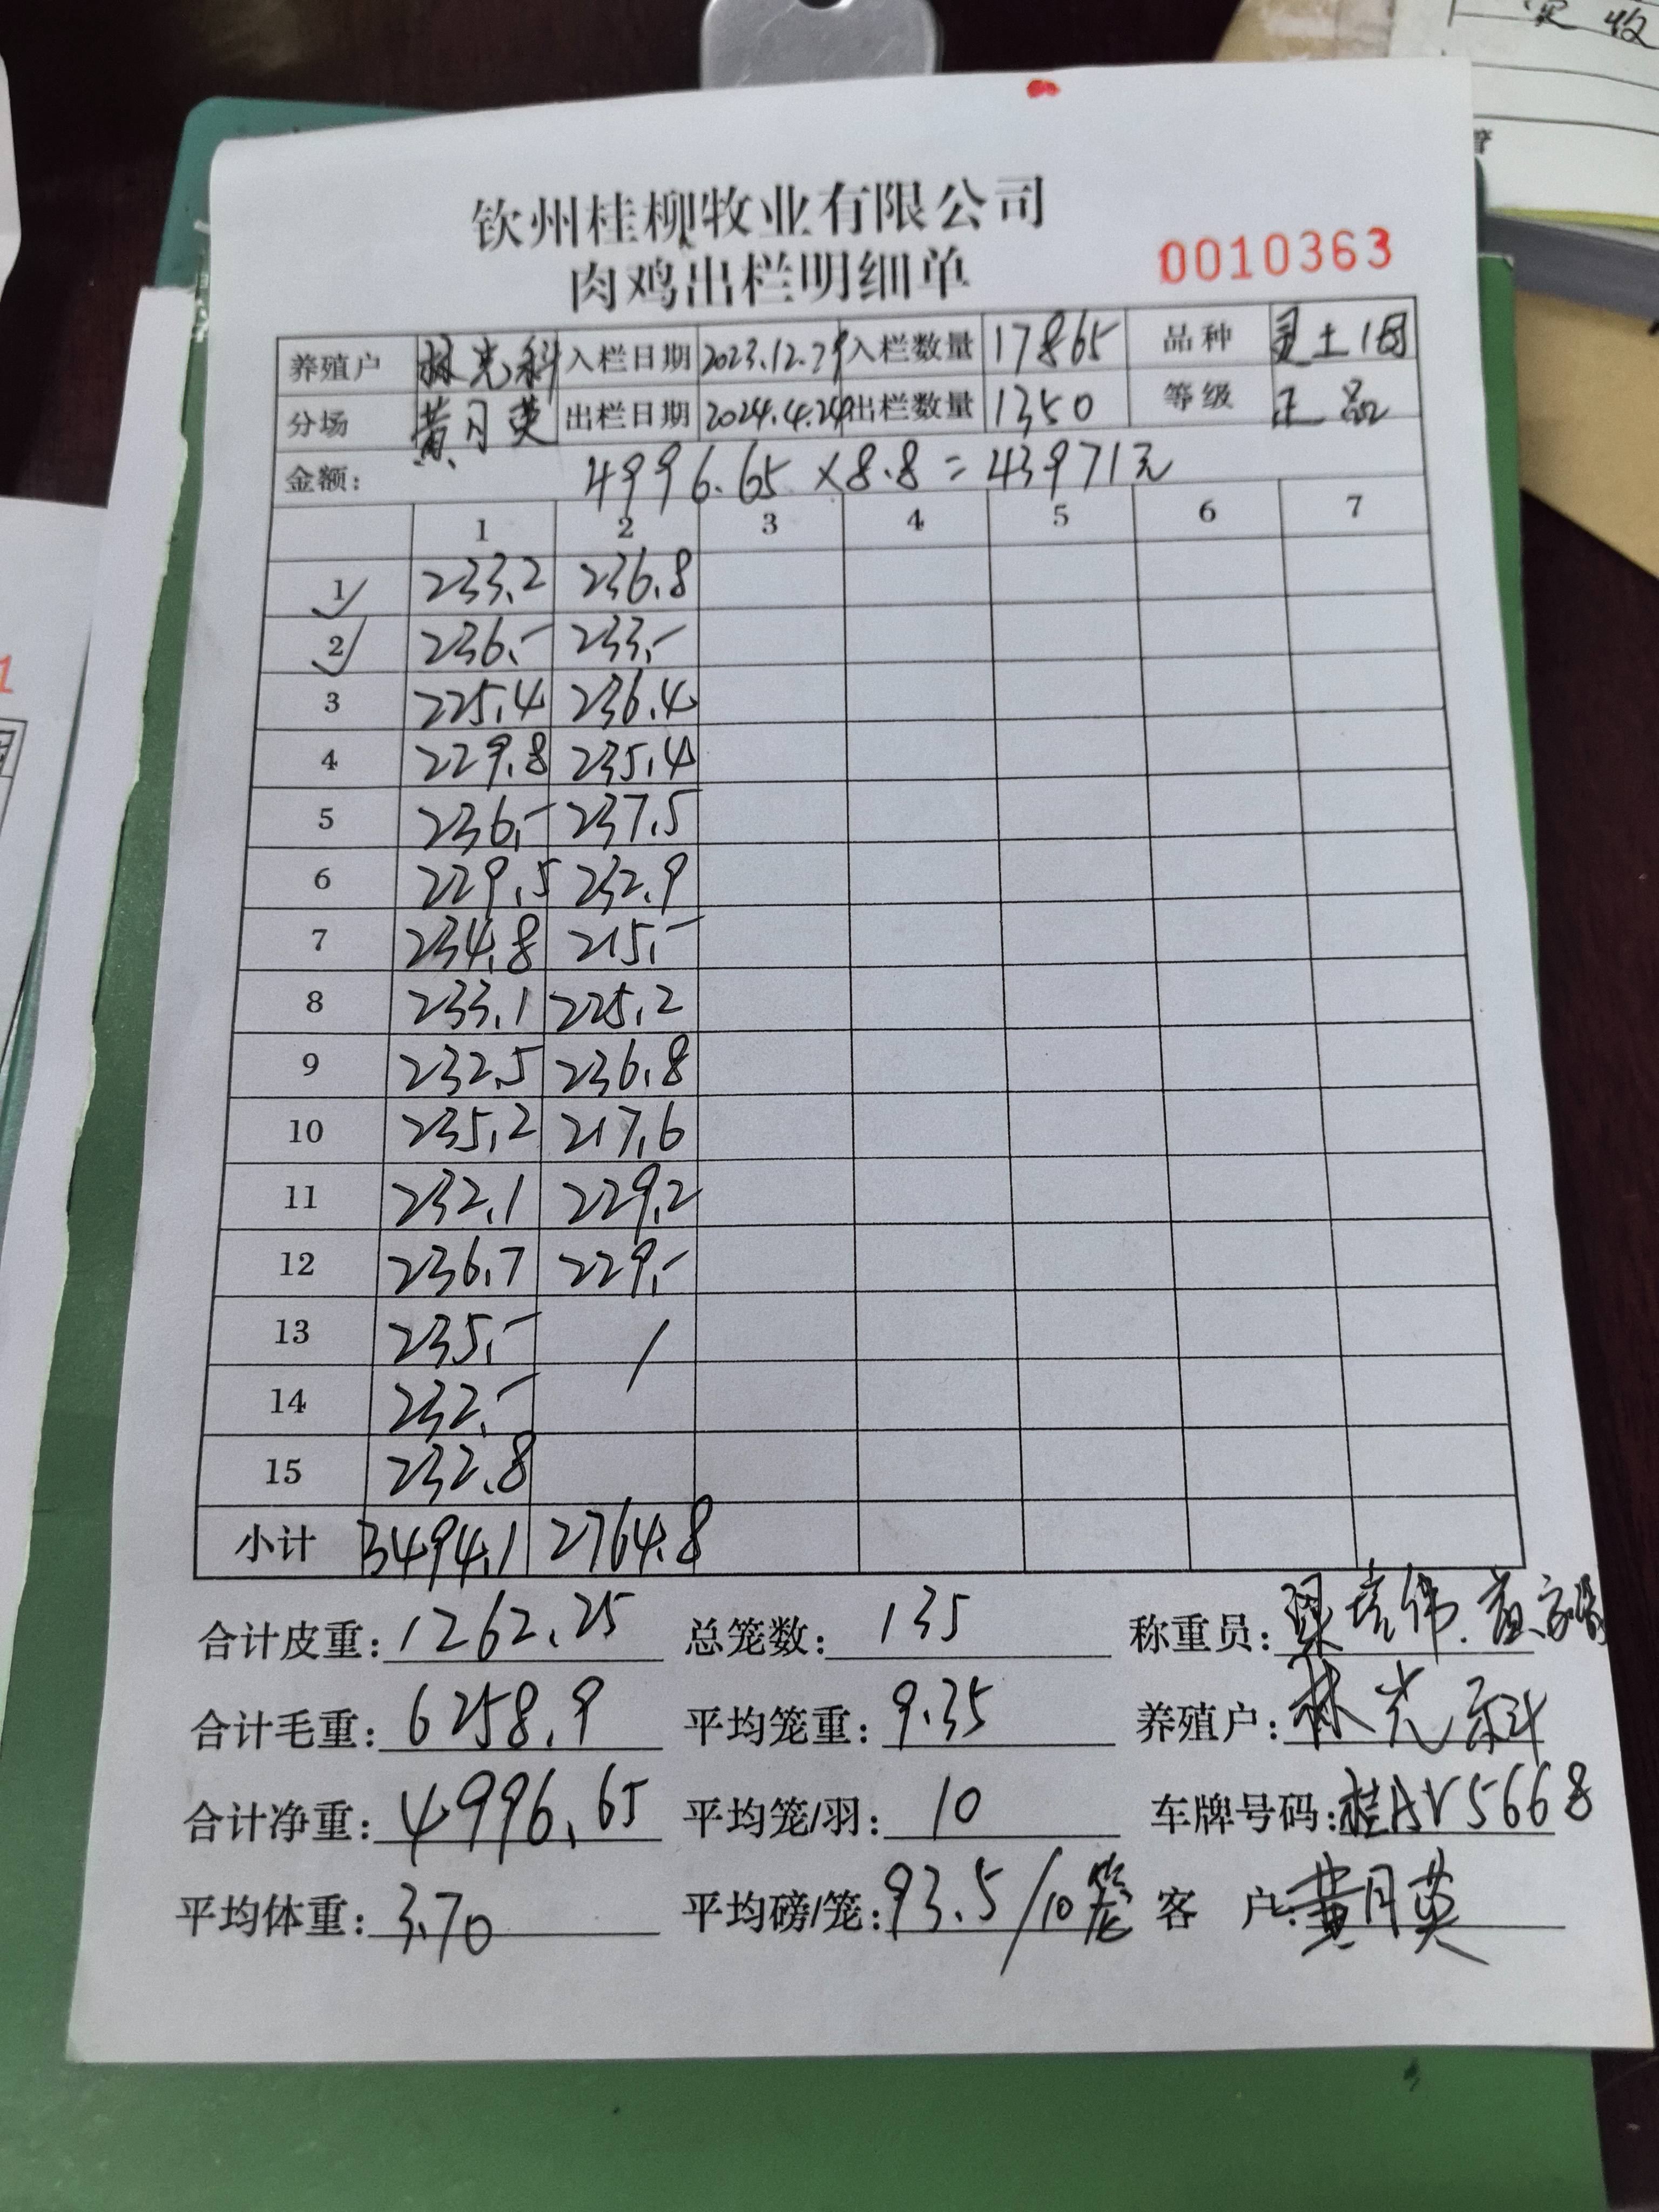 钦州桂柳牧业有限公司
肉鸡出栏明细单
0010363
养殖户 林光科 入栏日期 2023.12.29 入栏数量 17865 品种 灵土1号
分场 黄月英 出栏日期 2024.4.24 出栏数量 1350 等级 正品
金额: 4996.65×8.8=43971元
1 2 3 4 5 6 7
1 233.2 236.8
2 236.- 233.-
3 225.4 236.4
4 229.8 235.4
5 236.- 237.5
6 229.5 232.9
7 234.8 215.-
8 233.1 225.2
9 232.5 236.8
10 235.2 217.6
11 232.1 229.2
12 236.7 229.-
13 235.- /
14 232.-
15 232.8
小计 3494.1 2764.8
合计皮重: 1262.25 总笼数: 135 称重员:
合计毛重: 6258.9 平均笼重: 9.35 养殖户: 林光科
合计净重: 4996.65 平均笼/羽: 10 车牌号码: 桂AV5668
平均体重: 3.70 平均磅/笼: 93.5/10笼 客户: 黄月英